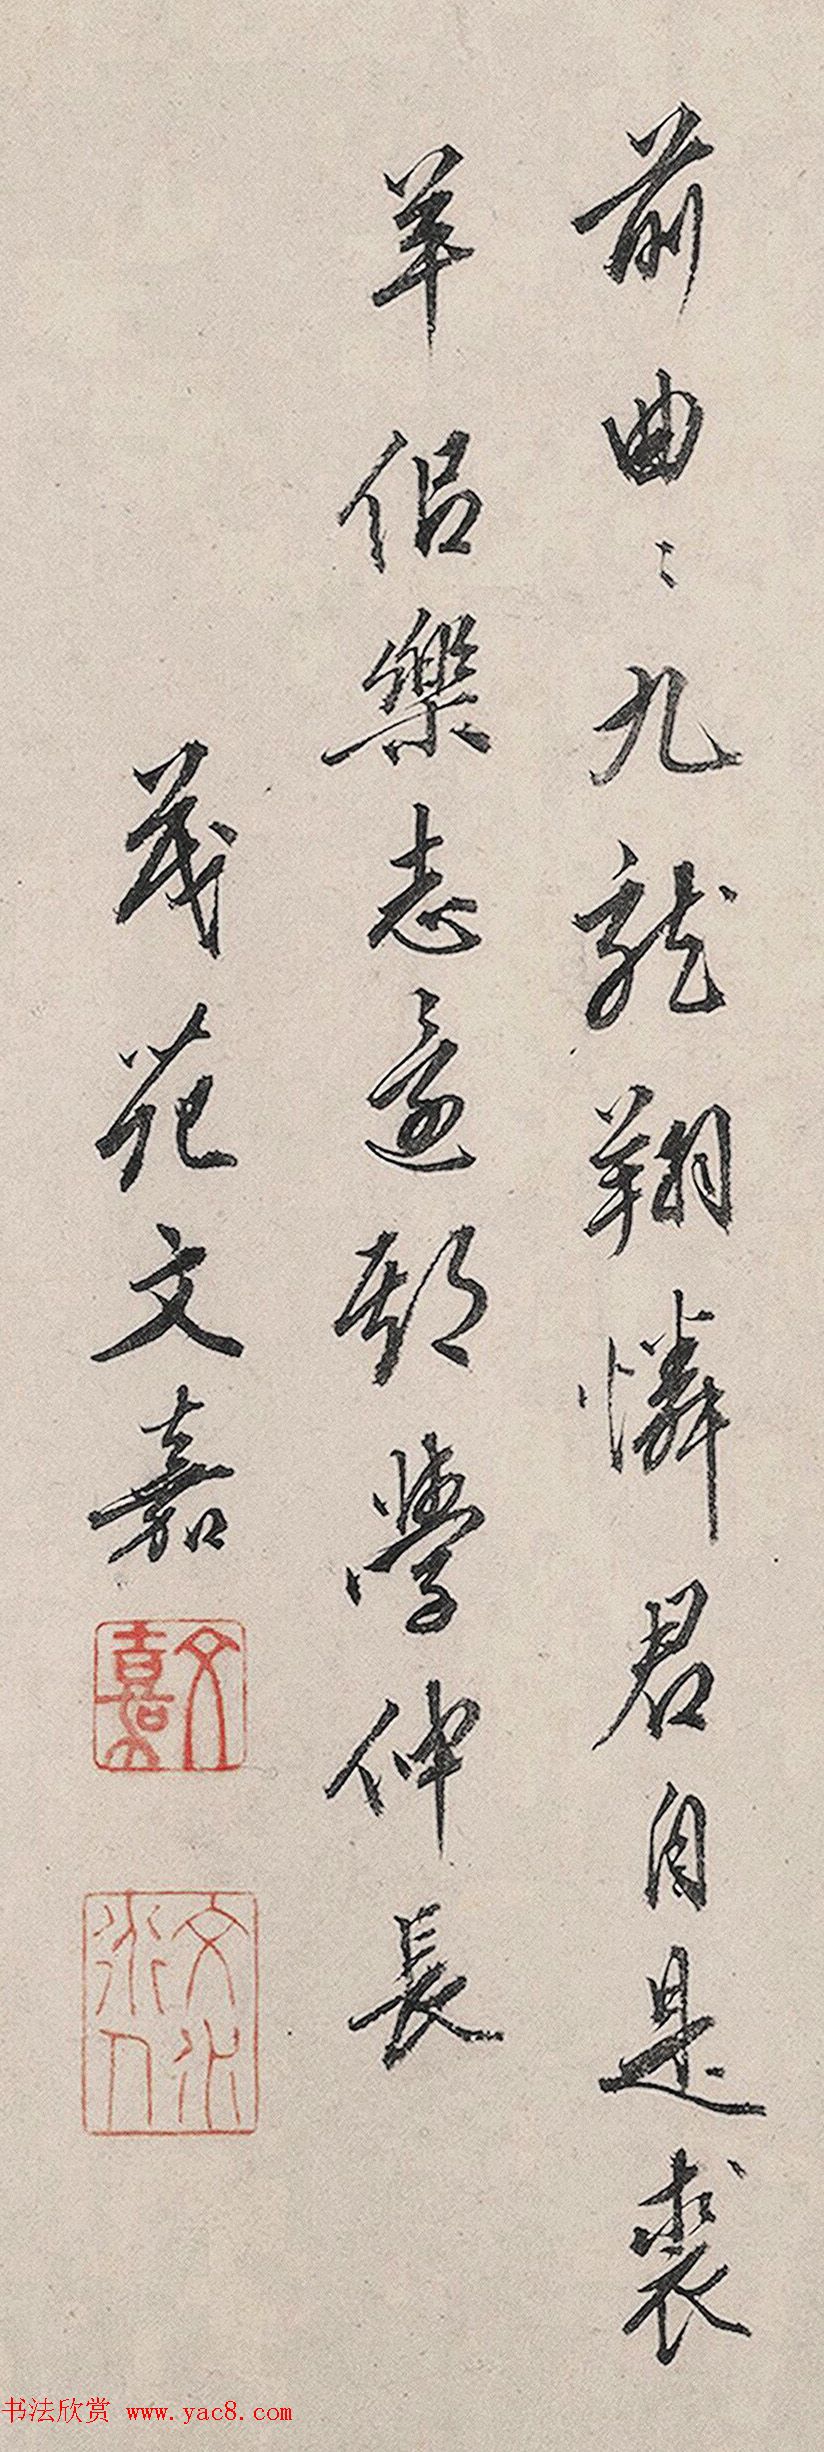 前曲〻九龍翔憐君自是裘
羊侣樂志還都學仲長
茂苑文嘉
文嘉
文水
承人
书法欣赏 www.yac8.com